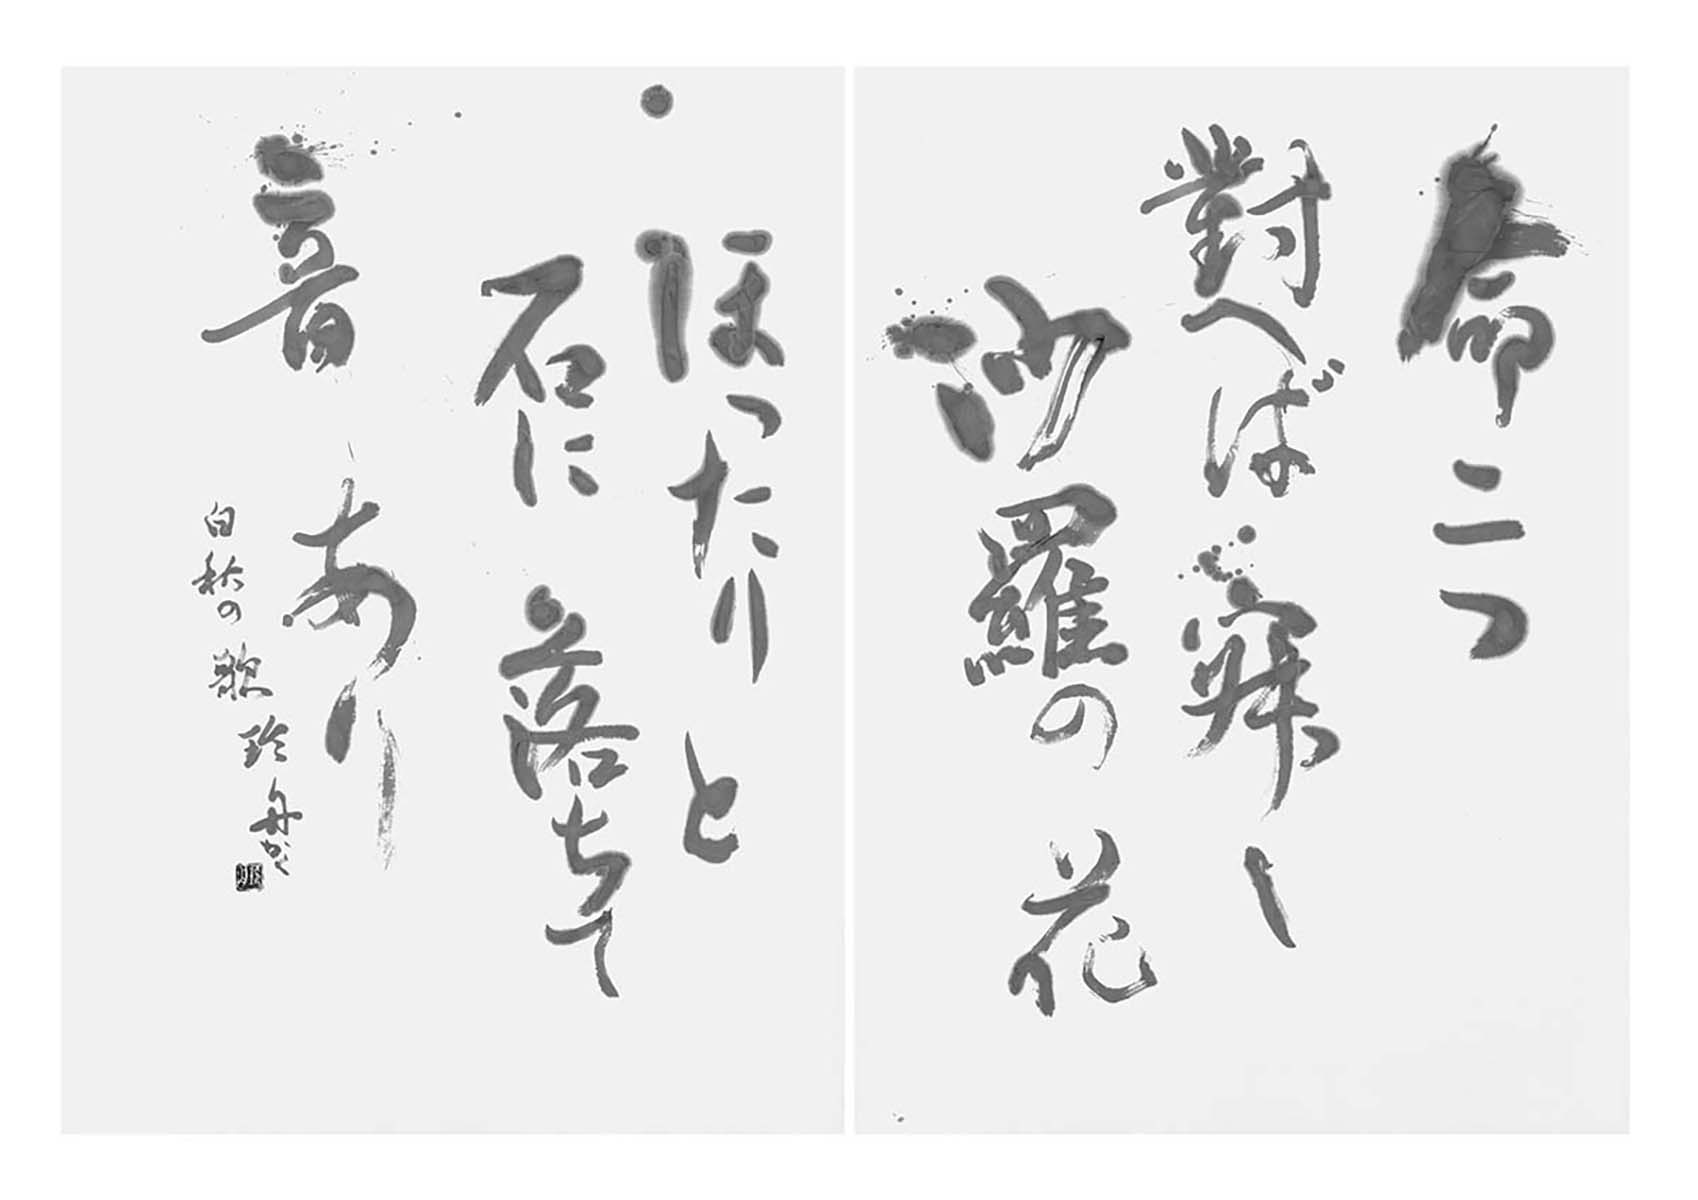 命二つ
對へば寂し
沙羅の花
ほつたりと
石に落ちて
音あり
白秋の歌 玲舟かく